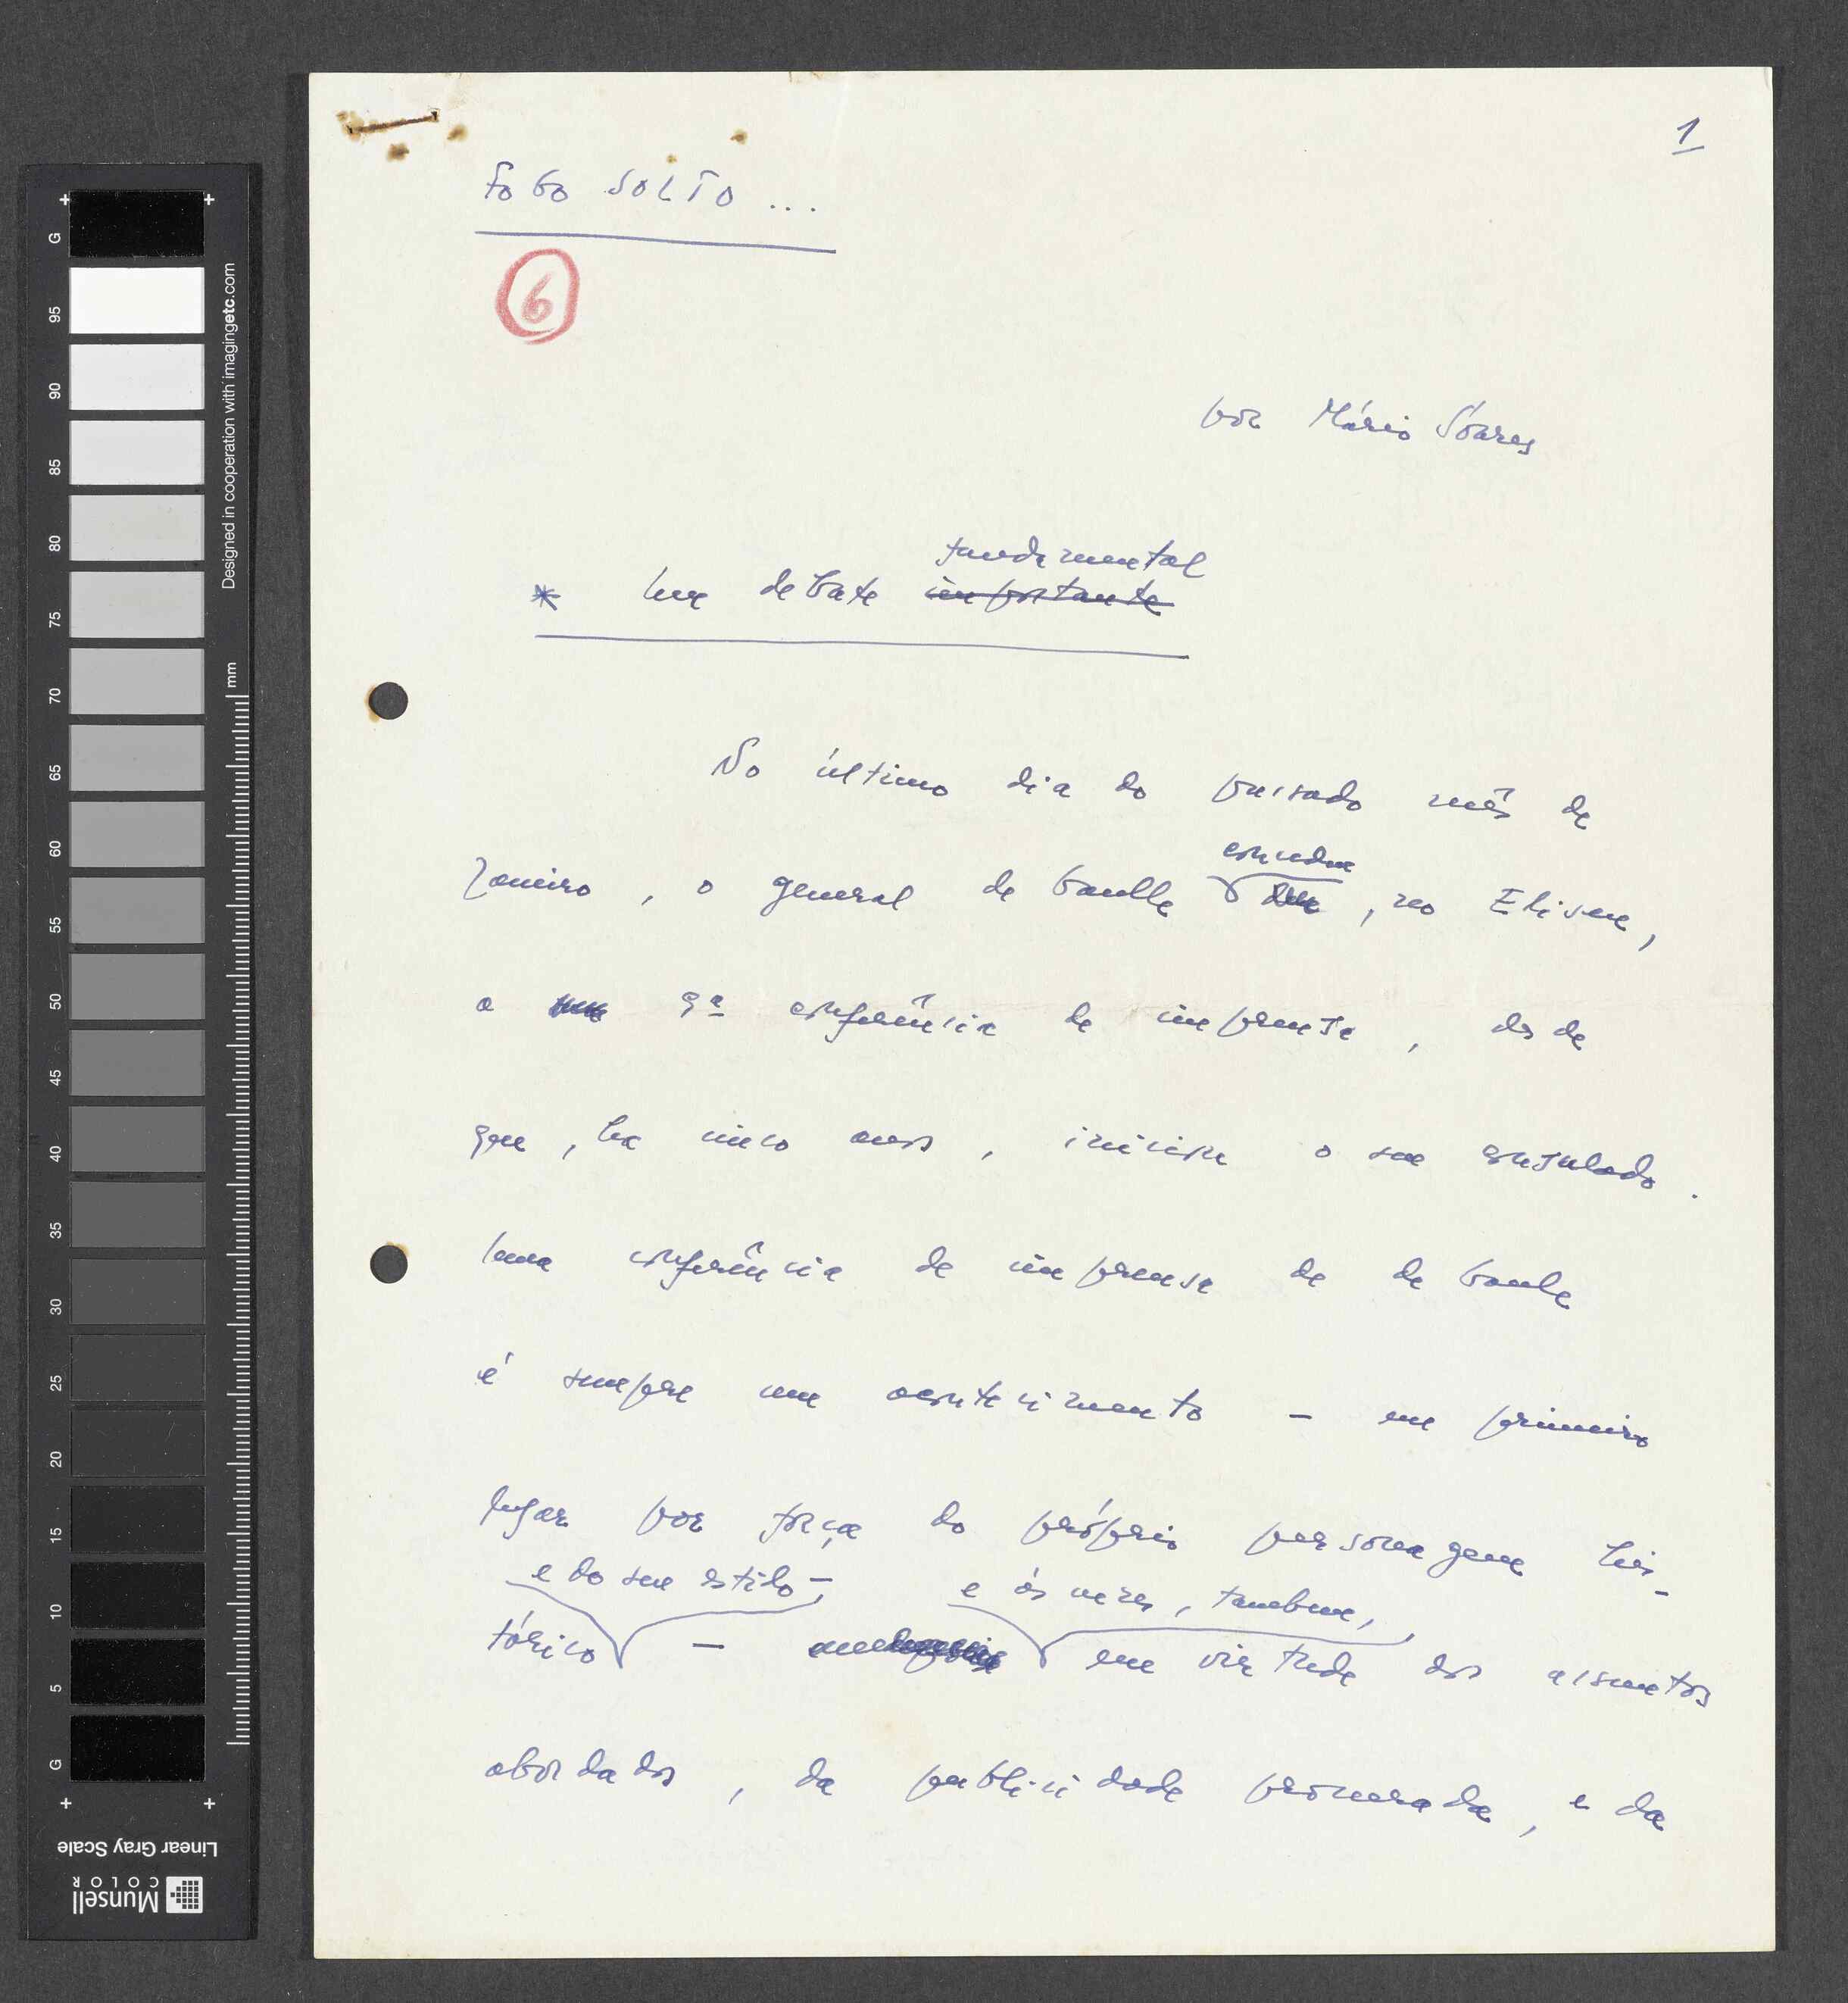 1
FOGO SOLTO ...
6
por Mário Soares
fundamental
* Um debate importante
No último dia do passado mês de
Janeiro, o general de Gaulle
concedeu
, no Eliseu,
a 9ª conferência de imprensa, desde
que, há cinco anos, iniciou o seu consulado.
Uma conferência de imprensa de de Gaulle
é sempre um acontecimento – em primeiro
lugar por força do próprio personagem his-
e do seu estilo – e às vezes, também,
tórico – em virtude dos assuntos
abordados, da publicidade procurada, e da
G
95
90
85
80
75
70
65
60
55
50
45
40
35
30
25
20
15
10
5
G
Designed in cooperation with imagingetc.com
mm
Linear Gray Scale
Munsell
COLOR